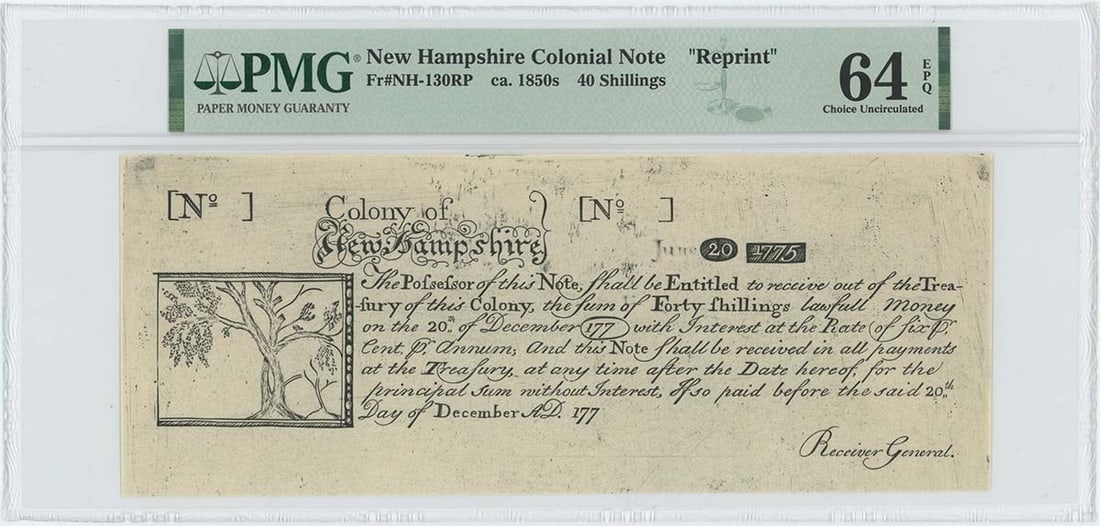 PMG® New Hampshire Colonial Note "Reprint" 64 EPQ
Fr#NH-130RP ca. 1850s 40 Shillings Choice Uncirculated
PAPER MONEY GUARANTY
[Nº ] Colony of [Nº ]
New Hampshire
June 20 1775
The Poſseſsor of this Note, ſhall be Entitled to receive out of the Trea-
ſury of this Colony, the ſum of Forty ſhillings lawfull Money
on the 20th of December 177 with Interest at the Rate of ſix ⅌.
Cent, ⅌. Annum; And this Note ſhall be received in all payments
at the Treaſury, at any time after the Date hereof, for the
principal Sum without Interest, If so paid before the said 20th
Day of December A.D. 177
Receiver General.